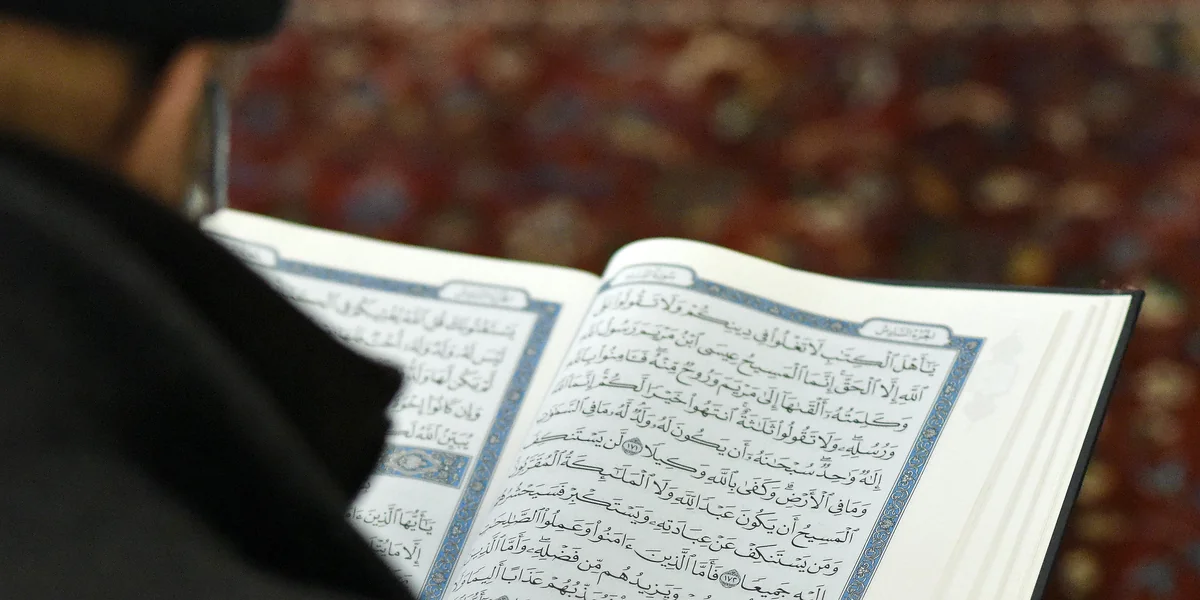 الجزء السادس
سورة النساء
يَٰٓأَهْلَ ٱلْكِتَٰبِ لَا تَغْلُوا۟ فِى دِينِكُمْ وَلَا تَقُولُوا۟ عَلَى
ٱللَّهِ إِلَّا ٱلْحَقَّ إِنَّمَا ٱلْمَسِيحُ عِيسَى ٱبْنُ مَرْيَمَ رَسُولُ ٱللَّهِ
وَكَلِمَتُهُۥٓ أَلْقَىٰهَآ إِلَىٰ مَرْيَمَ وَرُوحٌ مِّنْهُ فَـَٔامِنُوا۟ بِٱللَّهِ
وَرُسُلِهِۦ وَلَا تَقُولُوا۟ ثَلَٰثَةٌ ٱنتَهُوا۟ خَيْرًا لَّكُمْ إِنَّمَا ٱللَّهُ
إِلَٰهٌ وَٰحِدٌ سُبْحَٰنَهُۥٓ أَن يَكُونَ لَهُۥ وَلَدٌ لَّهُۥ مَا فِى ٱلسَّمَٰوَٰتِ
وَمَا فِى ٱلْأَرْضِ وَكَفَىٰ بِٱللَّهِ وَكِيلًا ١٧١ لَّن يَسْتَنكِفَ
ٱلْمَسِيحُ أَن يَكُونَ عَبْدًا لِّلَّهِ وَلَا ٱلْمَلَٰٓئِكَةُ ٱلْمُقَرَّبُونَ
وَمَن يَسْتَنكِفْ عَنْ عِبَادَتِهِۦ وَيَسْتَكْبِرْ فَسَيَحْشُرُهُمْ
إِلَيْهِ جَمِيعًا ١٧٢ فَأَمَّا ٱلَّذِينَ ءَامَنُوا۟ وَعَمِلُوا۟ ٱلصَّٰلِحَٰتِ
وَيَزِيدُهُم مِّن فَضْلِهِۦ وَأَمَّا ٱلَّذِينَ
عَذَابًا أَلِيمًا وَلَا
يَسْتَفْتُونَكَ قُلِ ٱللَّهُ يُفْتِيكُمْ فِى
لَيْسَ لَهُۥ وَلَدٌ وَلَهُۥٓ أُخْتٌ
لَّمْ يَكُن لَّهَا وَلَدٌ
وَإِن كَانُوٓا۟ إِخْوَةً
يُبَيِّنُ ٱللَّهُ لَ
يَٰٓأَيُّهَا ٱلَّذِينَ ءَا
إِلَّا مَا يُتْ